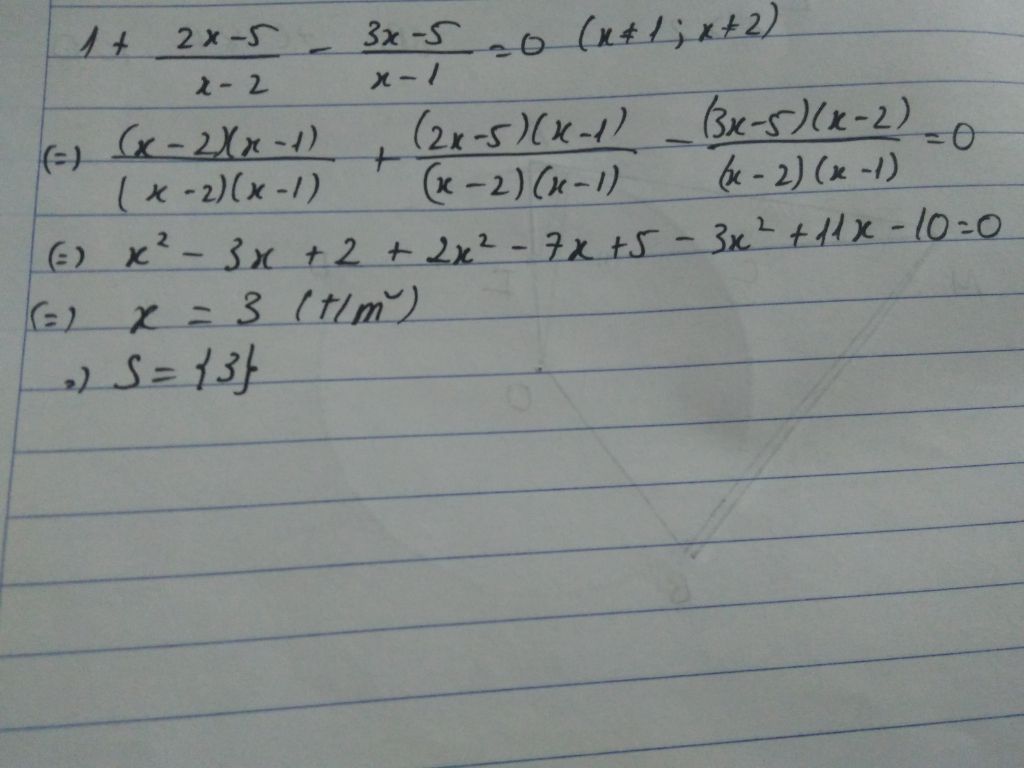 1 + (2x-5)/(x-2) - (3x-5)/(x-1) = 0 (x≠1; x≠2)
(=) ((x-2)(x-1))/((x-2)(x-1)) + ((2x-5)(x-1))/((x-2)(x-1)) - ((3x-5)(x-2))/((x-2)(x-1)) = 0
(=) x² - 3x + 2 + 2x² - 7x + 5 - 3x² + 11x - 10 = 0
(=) x = 3 (t/m~)
=) S = {3}